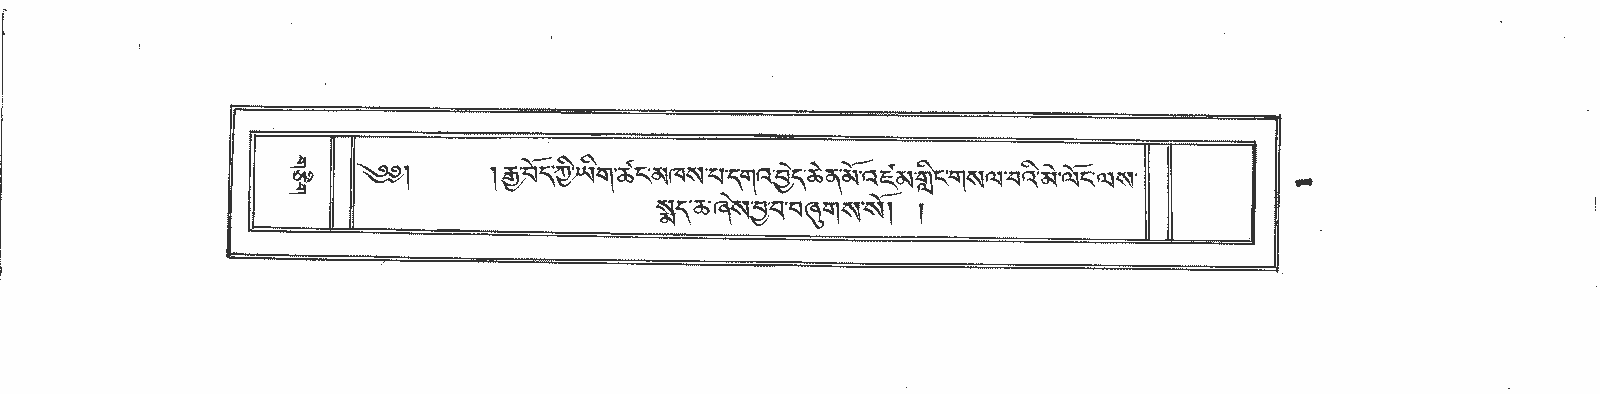 གཅིག
༄༅། །རྒྱ་བོད་ཀྱི་ཡིག་ཚང་མཁས་པ་དགའ་བྱེད་ཆེན་མོ་འཛམ་གླིང་གསལ་བའི་མེ་ལོང་ལས་
སྨད་ཆ་ཞེས་བྱ་བ་བཞུགས་སོ། །